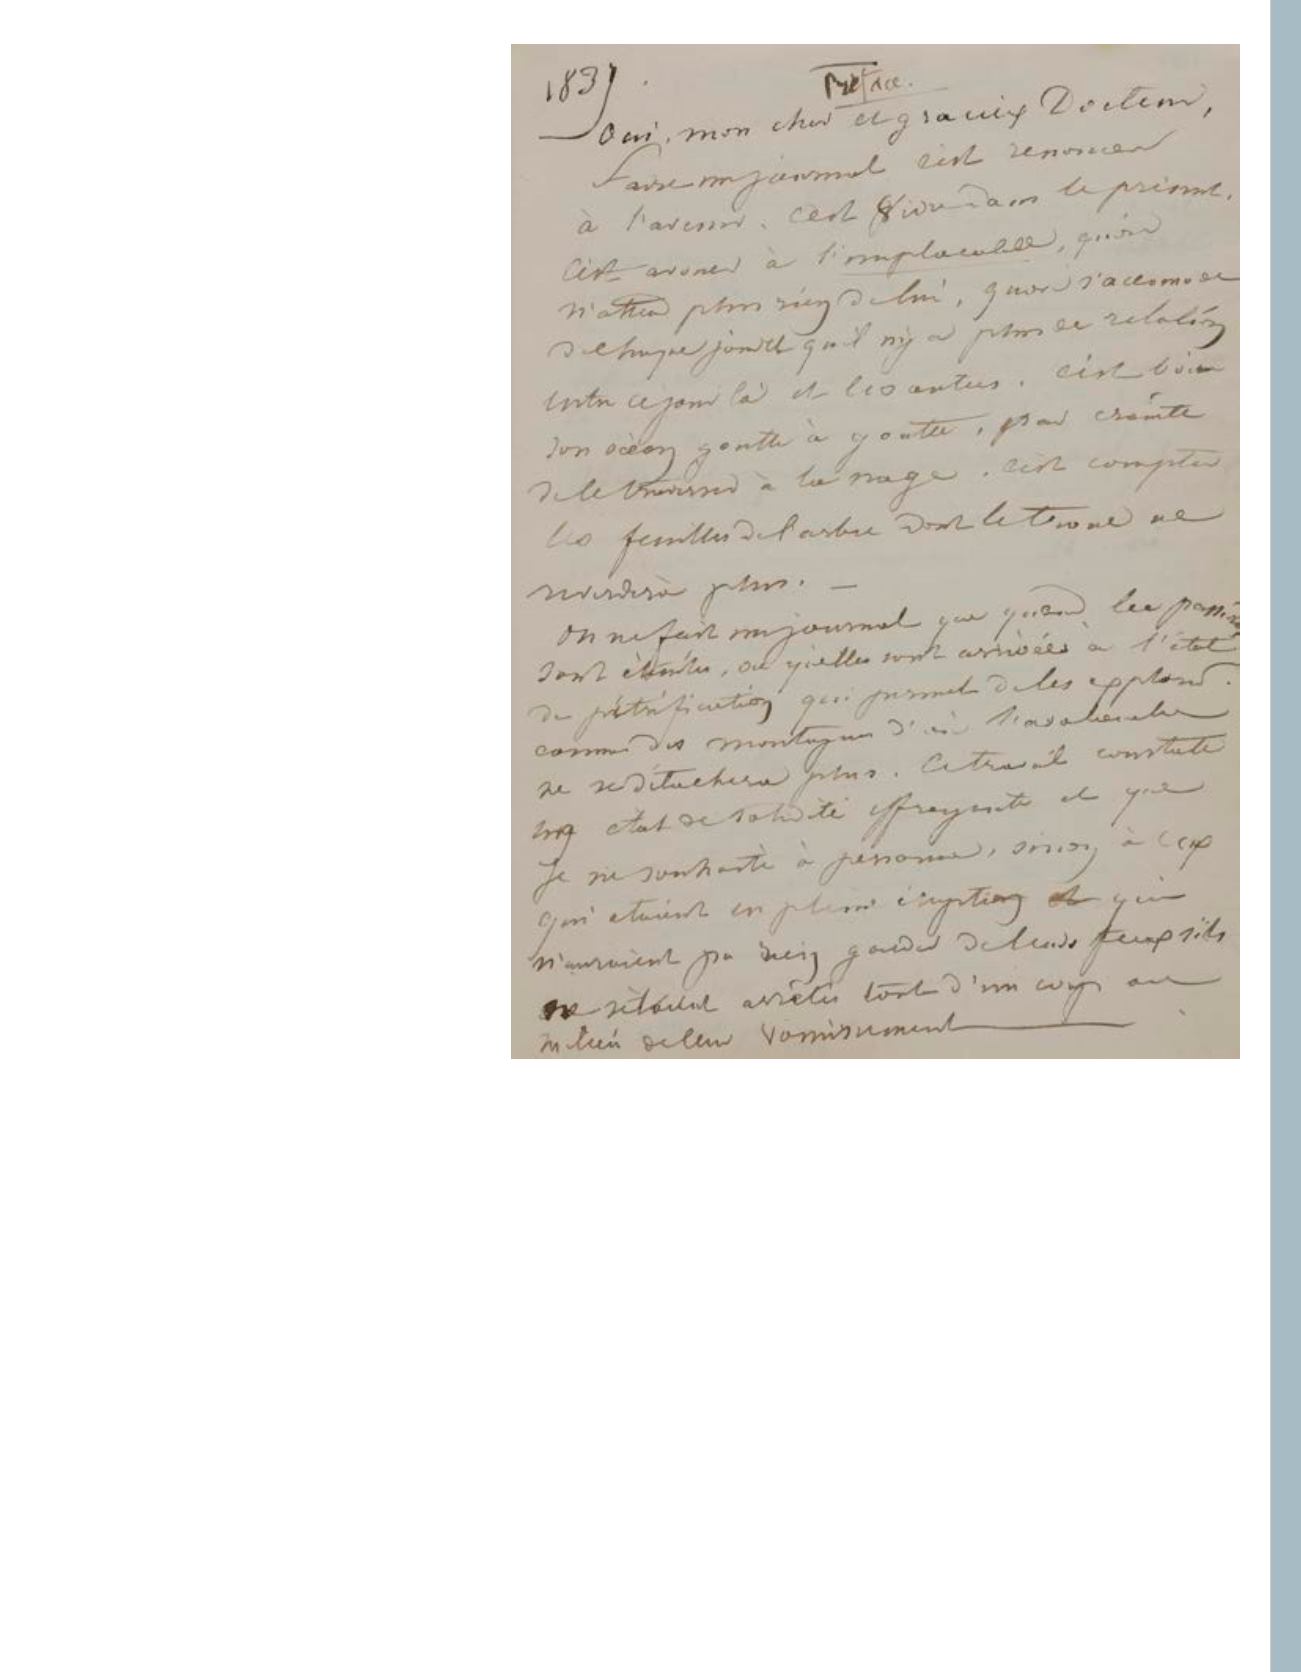 1837.
Préface.
Oui, mon cher et gracieux Docteur,
Faire un journal c'est renoncer
à l'avenir. c'est vivre dans le présent.
C'est avouer à l'implacable, qu'on
n'attend plus rien de lui, qu'on s'accomode
de chaque jour et qu'il n'y a plus de relation
entre ce jour là et les autres. c'est boire
son océan goutte à goutte, par crainte
de le traverser à la nage. c'est compter
les feuilles de l'arbre dont le tronc ne
reverdira plus. —
On ne fait un journal que quand les passions
sont éteintes, ou qu'elles sont arrivées à l'état
de pétrification qui permet de les explorer.
comme des montagnes d'où l'avalanche
ne se détachera plus. Ce travail constate
un état de solidité effrayante et que
je ne souhaite à personne, sinon à ceux
qui étaient en pleine éruption et qui
n'auraient pu rien garder de leurs feux s'ils
ne s'étaient arrêtés tout d'un coup au
milieu de leur vomissement